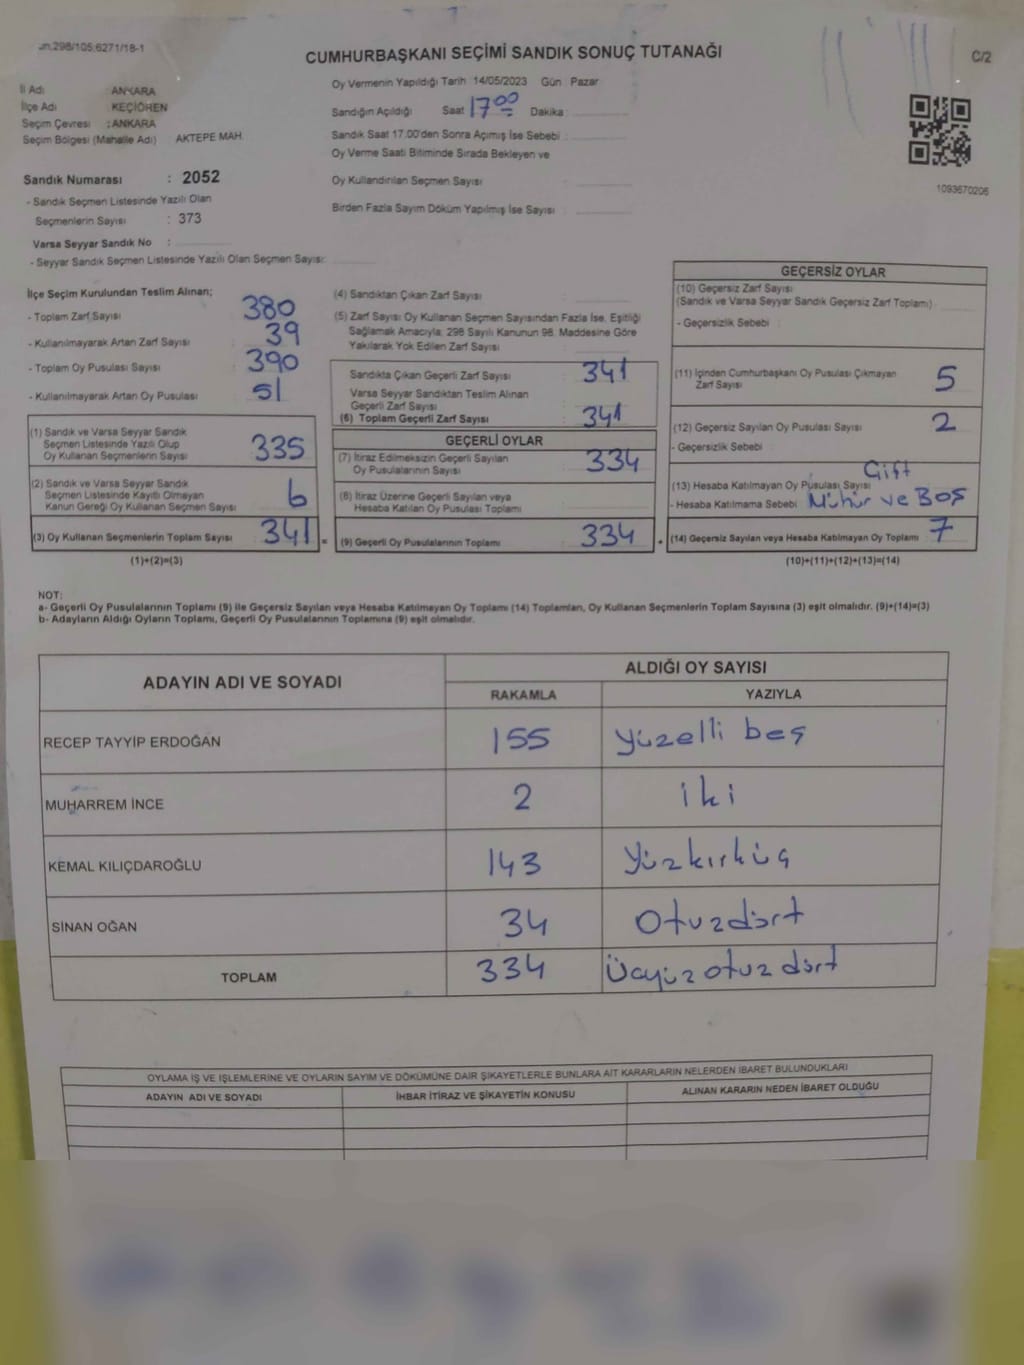 298/105;6271/18-1
CUMHURBAŞKANI SEÇİMİ SANDIK SONUÇ TUTANAĞI
C/2
İl Adı : ANKARA
İlçe Adı : KEÇİÖREN
Seçim Çevresi : ANKARA
Seçim Bölgesi (Mahalle Adı) AKTEPE MAH.
Oy Vermenin Yapıldığı Tarih 14/05/2023 Gün : Pazar
Sandığın Açıldığı Saat 17 00 Dakika :
Sandık Saat 17.00'den Sonra Açımış İse Sebebi :
Oy Verme Saati Bitiminde Sırada Bekleyen ve
Oy Kullandırılan Seçmen Sayısı :
Birden Fazla Sayım Döküm Yapılmış İse Sayısı :
1093670206
Sandık Numarası : 2052
- Sandık Seçmen Listesinde Yazılı Olan
Seçmenlerin Sayısı : 373
Varsa Seyyar Sandık No :
- Seyyar Sandık Seçmen Listesinde Yazılı Olan Seçmen Sayısı:
İlçe Seçim Kurulundan Teslim Alınan;
- Toplam Zarf Sayısı : 380
- Kullanılmayarak Artan Zarf Sayısı : 39
- Toplam Oy Pusulası Sayısı : 390
- Kullanılmayarak Artan Oy Pusulası : 51
(1) Sandık ve Varsa Seyyar Sandık
Seçmen Listesinde Yazılı Olup
Oy Kullanan Seçmenlerin Sayısı : 335
(2) Sandık ve Varsa Seyyar Sandık
Seçmen Listesinde Kayıtlı Olmayan
Kanun Gereği Oy Kullanan Seçmen Sayısı : 6
(3) Oy Kullanan Seçmenlerin Toplam Sayısı : 341 =
(1)+(2)=(3)
(4) Sandıktan Çıkan Zarf Sayısı :
(5) Zarf Sayısı Oy Kullanan Seçmen Sayısından Fazla İse, Eşitliği
Sağlamak Amacıyla, 298 Sayılı Kanunun 98. Maddesine Göre
Yakılarak Yok Edilen Zarf Sayısı :
Sandıkta Çıkan Geçerli Zarf Sayısı : 341
Varsa Seyyar Sandıktan Teslim Alınan
Geçerli Zarf Sayısı :
(6) Toplam Geçerli Zarf Sayısı : 341
GEÇERLİ OYLAR
(7) İtiraz Edilmeksizin Geçerli Sayılan
Oy Pusulalarının Sayısı : 334
(8) İtiraz Üzerine Geçerli Sayılan veya
Hesaba Katılan Oy Pusulası Toplamı :
(9) Geçerli Oy Pusulalarının Toplamı : 334 +
GEÇERSİZ OYLAR
(10) Geçersiz Zarf Sayısı
(Sandık ve Varsa Seyyar Sandık Geçersiz Zarf Toplamı) :
- Geçersizlik Sebebi :
(11) İçinden Cumhurbaşkanı Oy Pusulası Çıkmayan
Zarf Sayısı : 5
(12) Geçersiz Sayılan Oy Pusulası Sayısı : 2
- Geçersizlik Sebebi :
(13) Hesaba Katılmayan Oy Pusulası Sayısı Çift
- Hesaba Katılmama Sebebi : Mühür ve Boş
(14) Geçersiz Sayılan veya Hesaba Katılmayan Oy Toplamı : 7
(10)+(11)+(12)+(13)=(14)
NOT:
a- Geçerli Oy Pusulalarının Toplamı (9) ile Geçersiz Sayılan veya Hesaba Katılmayan Oy Toplamı (14) Toplamları, Oy Kullanan Seçmenlerin Toplam Sayısına (3) eşit olmalıdır. (9)+(14)=(3)
b- Adayların Aldığı Oyların Toplamı, Geçerli Oy Pusulalarının Toplamına (9) eşit olmalıdır.
ADAYIN ADI VE SOYADI
ALDIĞI OY SAYISI
RAKAMLA YAZIYLA
RECEP TAYYİP ERDOĞAN 155 yüzelli beş
MUHARREM İNCE 2 iki
KEMAL KILIÇDAROĞLU 143 Yüzkırküç
SİNAN OĞAN 34 Otuzdört
TOPLAM 334 Üçyüz otuz dört
OYLAMA İŞ VE İŞLEMLERİNE VE OYLARIN SAYIM VE DÖKÜMÜNE DAİR ŞİKAYETLERLE BUNLARA AİT KARARLARIN NELERDEN İBARET BULUNDUKLARI
ADAYIN ADI VE SOYADI İHBAR İTİRAZ VE ŞİKAYETİN KONUSU ALINAN KARARIN NEDEN İBARET OLDUĞU